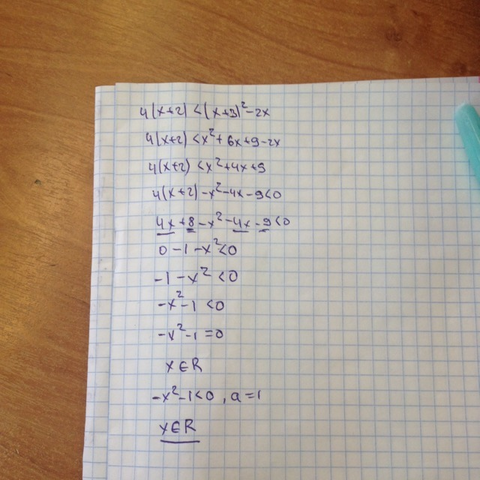 4(x+2) <(x+3)²-2x
4(x+2) <x²+6x+9-2x
4(x+2) <x²+4x+9
4(x+2)-x²-4x-9<0
4x+8-x²-4x-9<0
0-1-x²<0
-1-x²<0
-x²-1<0
-x²-1=0
x∈R
-x²-1<0, a=1
x∈R